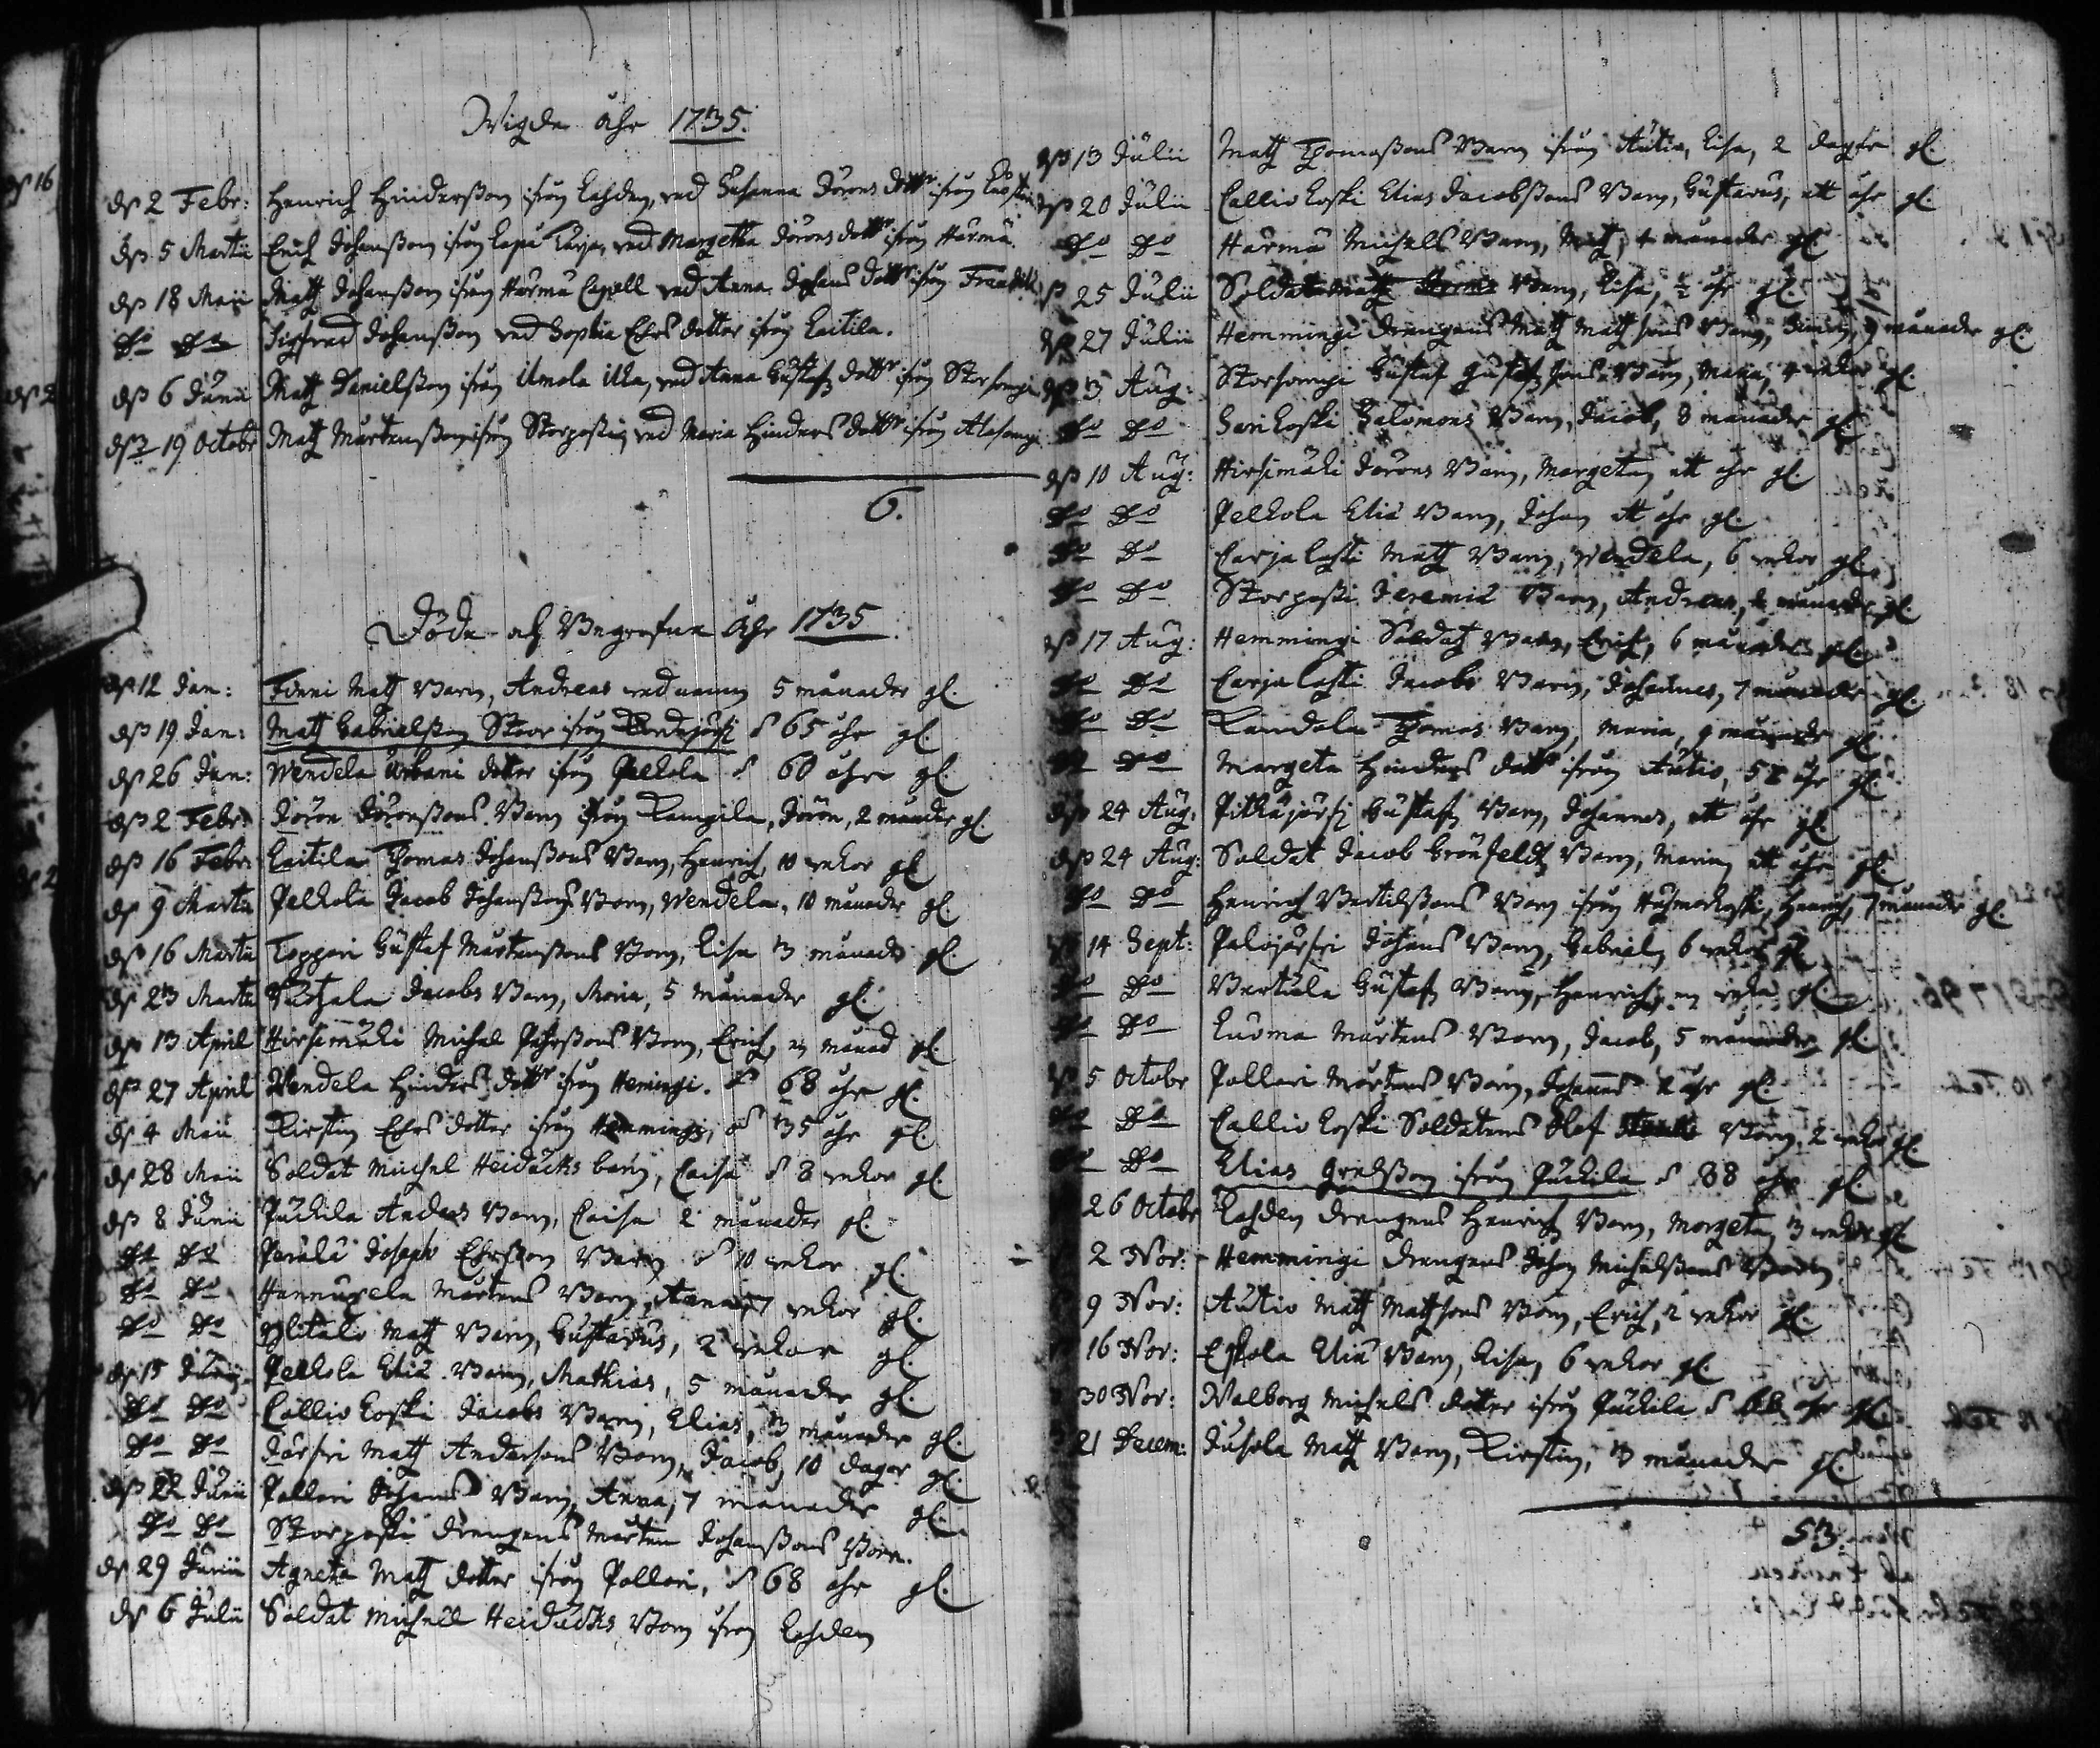 Wigde åhr 1735.
ds 2 Febr: Henrich Hindersson ifrån Lahden, med Susanna Jörens dotter ifrån
ds 5 Martii Erich Johansson ifrån Lapu Kärja, med Margetha Jörensdotter ifrån Härmä.
ds 18 Maii Matz Johansson ifrån Härmä Capell med Anna Johans dotter ifrån
Do Do Sigfred Johansson med Sophia Ehrs dotter ifrån Laitila.
ds 6 Junii Matz Danielsson ifrån Ilmola, med Anna Gustafz dotter ifrån Storsompi
ds 19 Octobr Matz Mårtensson ifrån Storpasti, med Maria Hinders dotter ifrån Alasompi
6.
Döde och Begrafne Åhr 1735
ds 12 Jan: Finni Matz Barn, Andreas vid namn 5 månader gl.
ds 19 Jan: Matz Gabrielsson Stoor ifrån d 65 åhr gl.
ds 26 Jan: Wendela Urbani dotter ifrån Pelkola d 60 åhr gl.
ds 2 Febr: Jören Jörenssons Barn ifrån Kampila, Jören, 2 månader gl.
ds 16 Febr: Laitila Thomas Johanssons Barn, Henrich, 10 wekor gl.
ds 9 Martii Pelkola Jacob Johanssons Barn, Wendela, 10 månader gl.
ds 16 Martii Toppari Gustaf Mårtenssons Barn, Lisa 3 månader gl.
ds 23 Martii Jacobs Barn, Maria, 5 månader gl.
ds 13 April Hirsimäki Michel Pehrssons Barn, Erich, en månad gl.
ds 27 April Wendela Hinders dotter ifrån Hemingi. d 68 åhr gl.
ds 4 Maii Kirstin Ehrs dotter ifrån Hemmingi, d 35 åhr gl.
ds 28 Maii Soldat Michel Heiducks barn, Caisa d 8 wekor gl.
ds 8 Junii Puckila Anders Barn, Caisa 2 månader gl.
Do Do Perälä Joseph Ehrsson Barn d 10 wekor gl.
Do Do Hannuxela Mårtens Barn, Anna, 7 wekor gl.
Do Do Ylitalo Matz Barn, Gustavus, 2 wekor gl.
ds 15 Junii Pelkola Eliæ Barn, Mathias, 5 månader gl.
Do Do Callio Koski Jacobs Barn, Elias, 3 månader gl.
Do Do Järfwi Matz Andersons Barn, Jacob, 10 dagar gl.
ds 22 Junii Pollari Johans Barn, Anna, 7 månader gl.
Do Do Storpasti drengens Mårten Johanssons Barn.
ds 29 Junii Agneta Matz dotter ifrån Pollari, d 68 åhr gl.
ds 6 Julii Soldat Michell Heiducks Barn ifrån Lahden
ds 13 Julii Matz Thomassons Barn ifrån Autio, Lisa, 2 dagar gl.
ds 20 Julii Callio Koski Elias Jacobssons Barn, Gustavus, ett åhr gl.
Do Do Härmä Michels Barn, Matz, 4 månader gl.
ds 25 Julii Soldat Matz Barn, Lisa, ½ åhr gl.
ds 27 Julii Hemmingi drengens Matz Mathsons Barn, 9 månader gl.
ds 3 Aug: Storsompi Gustaf Gustafsons Barn, Maria, 4 wekor gl.
Do Do Sarikoski Salomons Barn, Jacob, 8 månader gl.
ds 10 Aug: Hirsimäki Jörens Barn, Margeta, ett åhr gl.
Do Do Pelkola Eliæ Barn, Johan ett åhr gl.
Do Do Carja Lasti Matz Barn, Wendela, 6 wekor gl.
Do Do Storpasti Jeremiæ Barn, Andreas, månader gl.
ds 17 Aug: Hemmingi Soldatz Barn, Erich, 6 månader gl.
Do Do Carja Lasti Jacobs Barn, Johannes, 7 månader gl.
Do Do Kandola Thomas Barn, Maria, 9 månader gl.
Do Do Margeta Hinders dotter ifrån Autio, 58 åhr gl.
ds 24 Aug: Pitkäjärfi Gustafz Barn, Johannes, ett åhr gl.
ds 24 Aug: Soldat Jacob Grönfeldz Barn, Maria, ett åhr gl.
Do Do Henrich Bertilssons Barn ifrån, Henrich, 7 månader gl.
14 Sept: Palojärfwi Johans Barn, Gabriel, 6 wekor gl.
Do Do Bertula Gustafz Barn, Henrich, en weka gl.
Do Do Luoma Mårtens Barn, Jacob, 5 månader gl.
5 Octobr Pollari Mårtens Barn, Johannes 2 åhr gl.
Do Do Callio Koski Soldatens Olof Barn 2 wekor gl.
Do Do Elias Grelsson ifrån Puckila d 88 åhr gl.
26 Octobr Lahden drengens Henrich Barn, Margeta, 3 wekor gl.
2 Nov: Hemmingi drengens Johan Michelssons Barn
9 Nov: Autio Matz Mathsons Barn, Erich, 2 wekor gl.
16 Nov: Eskola Eliæ Barn, Lisa, 6 wekor gl.
30 Nov: Walborg Michels dotter ifrån Puckila d åhr gl.
21 Decem: Jusola Matz Barn, Kirstin, 3 månader gl.
53.